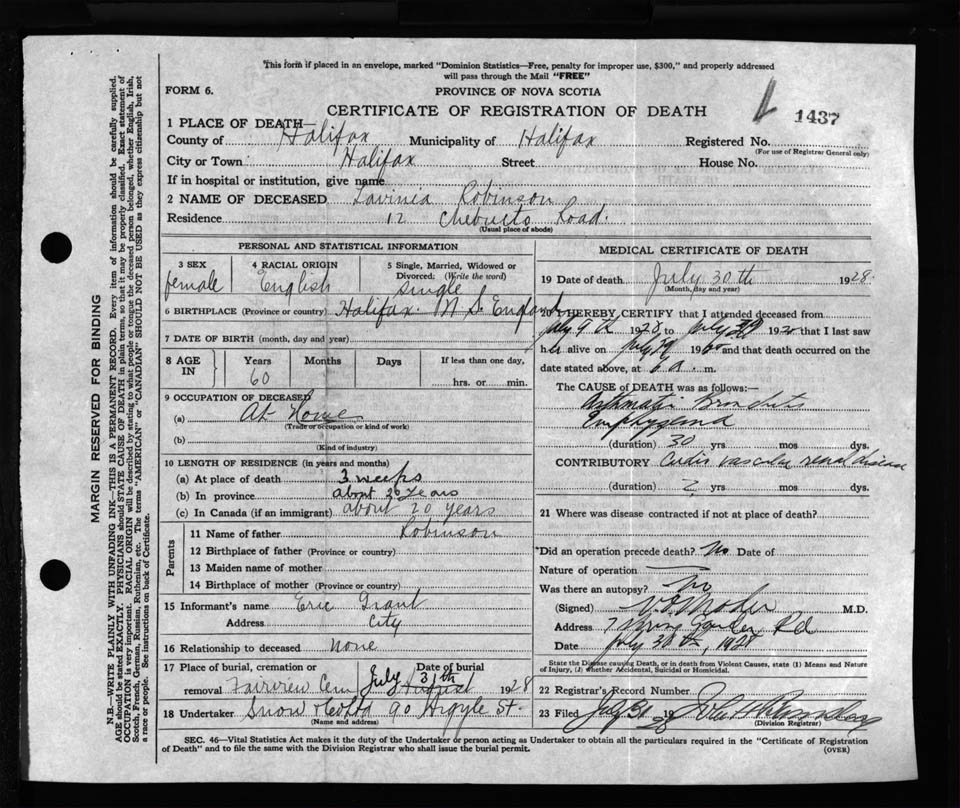 This form if placed in an envelope, marked "Dominion Statistics—Free, penalty for improper use, $300," and properly addressed
will pass through the Mail "FREE"
FORM 6.
PROVINCE OF NOVA SCOTIA
CERTIFICATE OF REGISTRATION OF DEATH
1437
1 PLACE OF DEATH—
County of Halifax Municipality of Halifax Registered No.
(For use of Registrar General only)
City or Town Halifax Street House No.
If in hospital or institution, give name
2 NAME OF DECEASED Lavinia Robinson
Residence 12 Chebucto Road.
(Usual place of abode)
PERSONAL AND STATISTICAL INFORMATION
3 SEX
female
4 RACIAL ORIGIN
English
5 Single, Married, Widowed or
Divorced: (Write the word)
Single
6 BIRTHPLACE (Province or country) Halifax. England
7 DATE OF BIRTH (month, day and year)
8 AGE IN
Years Months Days If less than one day,
60
hrs. or min.
9 OCCUPATION OF DECEASED
(a) At Home
(Trade or occupation or kind of work)
(b)
(Kind of industry)
10 LENGTH OF RESIDENCE (in years and months)
(a) At place of death 3 weeks
(b) In province about 20 years
(c) In Canada (if an immigrant) about 20 years
Parents
11 Name of father Robinson
12 Birthplace of father (Province or country)
13 Maiden name of mother
14 Birthplace of mother (Province or country)
15 Informant's name Eric Grant
Address City
16 Relationship to deceased none
17 Place of burial, cremation or Date of burial
removal Fairview Cem July 31th August 1928
18 Undertaker Snow 90 Argyle St.
(Name and address)
MEDICAL CERTIFICATE OF DEATH
19 Date of death July 30th 1928.
(Month, day and year)
20 I HEREBY CERTIFY that I attended deceased from
July 9 1928 to July that I last saw
her alive on July and that death occurred on the
date stated above, at 6 a. m.
The CAUSE of DEATH was as follows:—
Asthmatic Bronchitis
Emphysema
(duration) 30 yrs mos dys.
CONTRIBUTORY vascular renal disease
(duration) ? yrs mos dys.
21 Where was disease contracted if not at place of death?
*Did an operation precede death? No Date of
Nature of operation
Was there an autopsy? No
(Signed) M.D.
Address Spring Garden Rd
Date July 30th, 1928
State the Disease causing Death, or in death from Violent Causes, state (1) Means and Nature
of Injury, (2) whether Accidental, Suicidal or Homicidal.
22 Registrar's Record Number
23 Filed July 31 19
(Division Registrar)
SEC. 46—Vital Statistics Act makes it the duty of the Undertaker or person acting as Undertaker to obtain all the particulars required in the "Certificate of Registration
of Death" and to file the same with the Division Registrar who shall issue the burial permit.
(OVER)
MARGIN RESERVED FOR BINDING
N.B.—WRITE PLAINLY WITH UNFADING INK—THIS IS A PERMANENT RECORD. Every item of information should be carefully supplied.
AGE should be stated EXACTLY. PHYSICIANS should STATE CAUSE OF DEATH in plain terms, so that it may be properly classified. Exact statement of
OCCUPATION is very important. RACIAL ORIGIN will be described by stating to what people or tongue the deceased person belonged, whether English, Irish,
Scotch, French, German, Russian, Ruthenian, etc. The terms "AMERICAN" or "CANADIAN" SHOULD NOT BE USED as they express citizenship but not
a race or people. See instructions on back of Certificate.